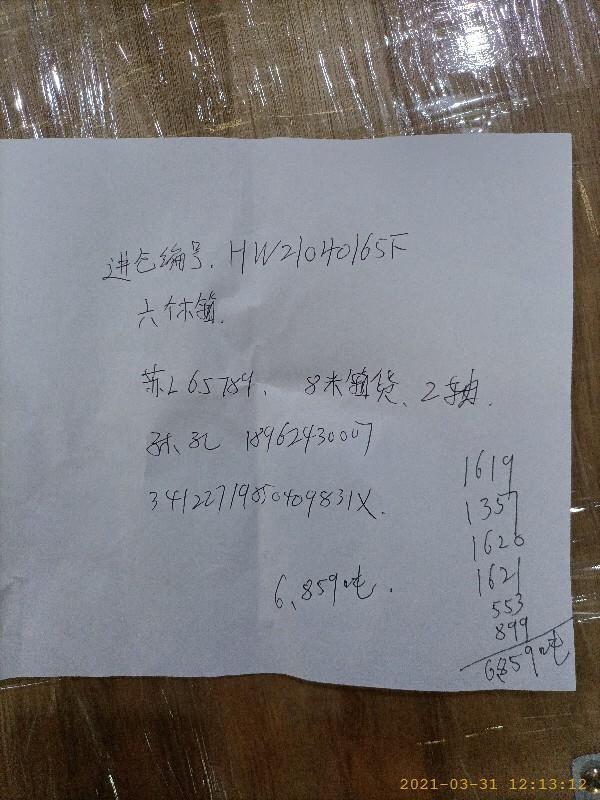 进仓编号. HW21040165F
六个木箱.
苏L65789、8米箱货、2轴.
孙孔 18962430007
34122719850409831X.
6.859吨.
1619
1357
1620
1621
553
899
6.859吨
2021-03-31 12:13:12